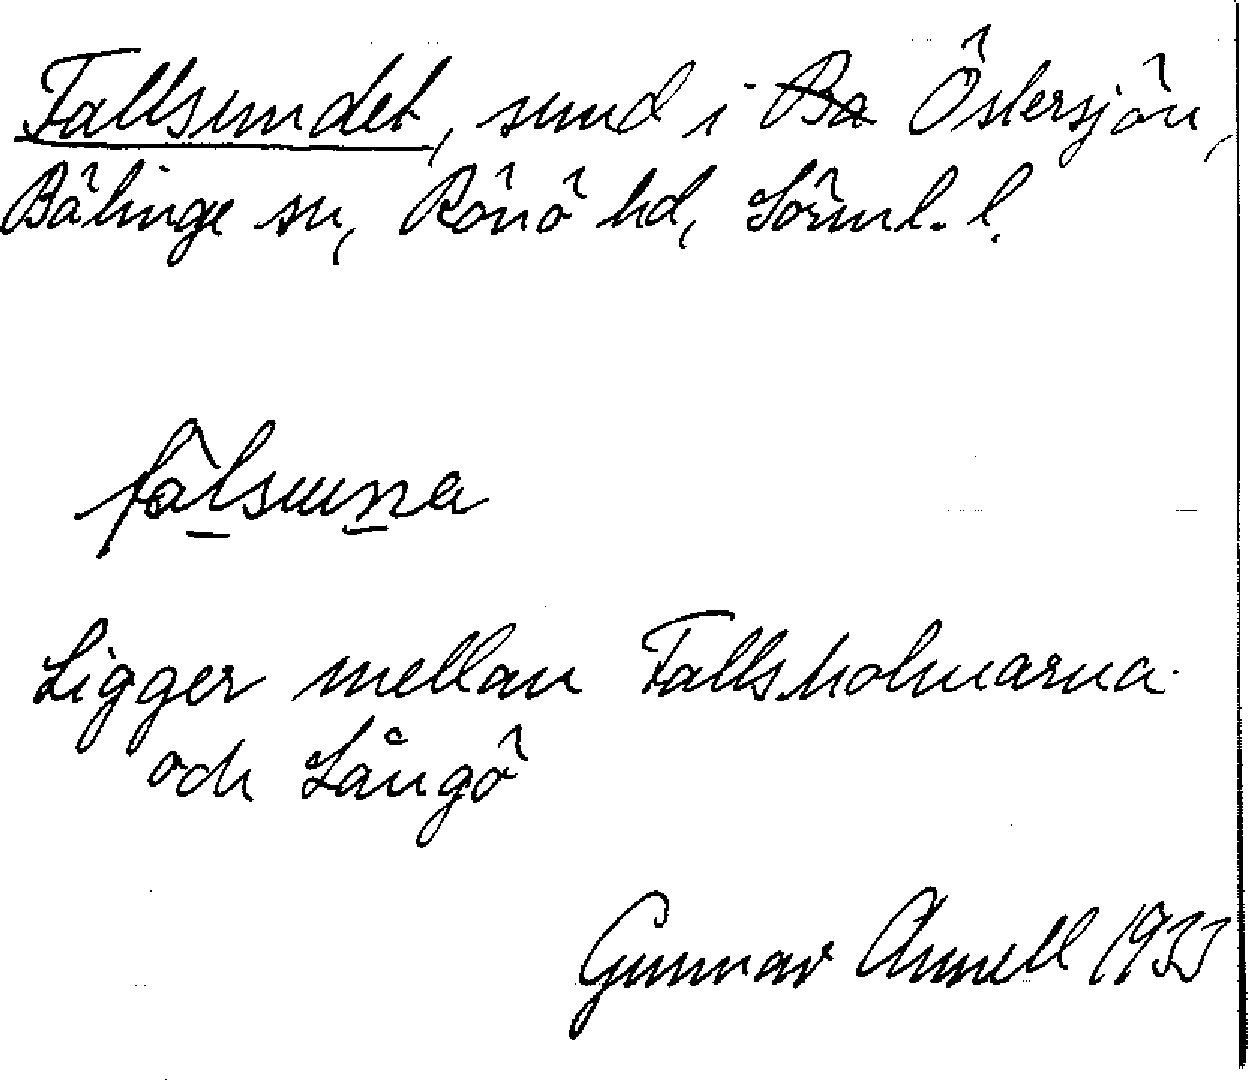 Fallsundet, sund i Östersjön,
Bälinge sn, Rönö hd, Sörml. l.
fàlsuna
Ligger mellan Fallsholmarna
och Långö
Gunnar Annell 1933